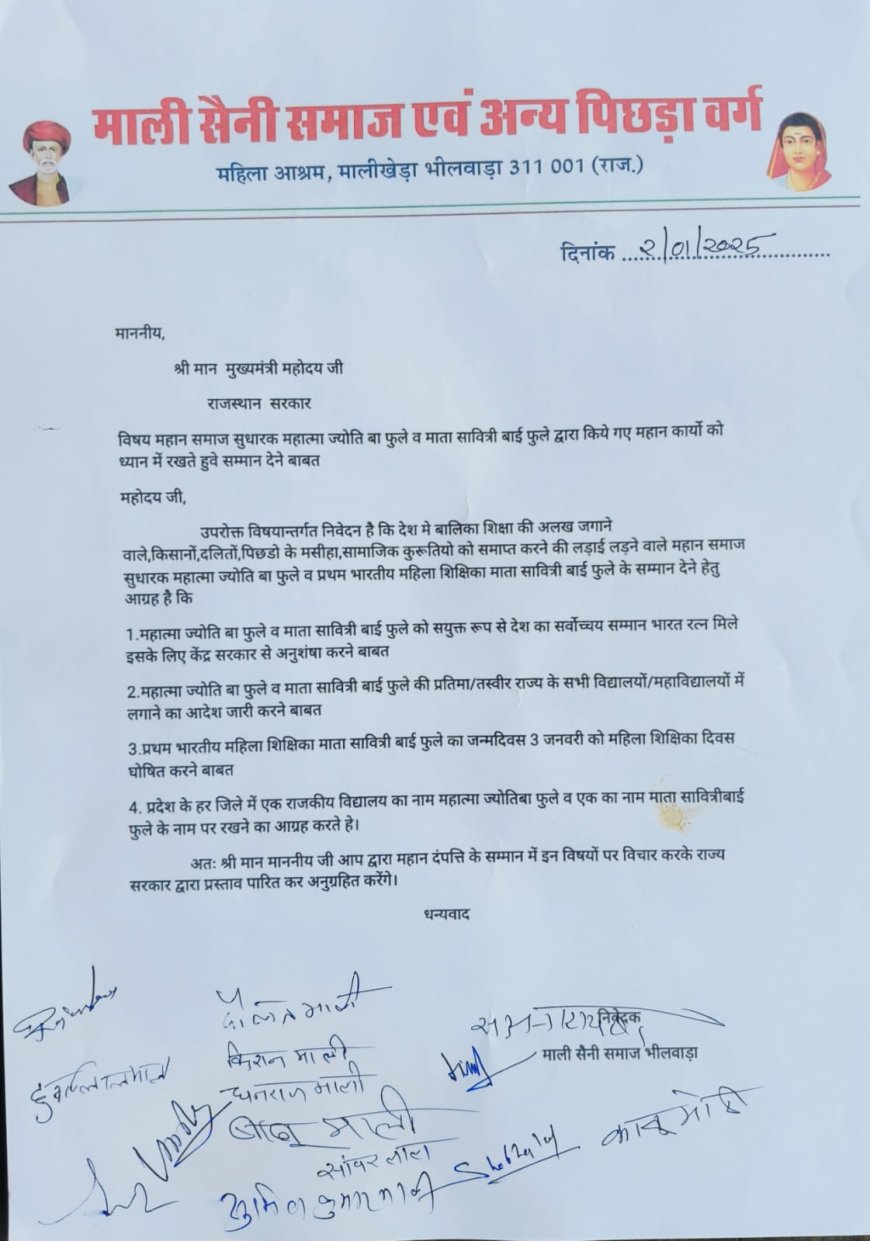 माली सैनी समाज एवं अन्य पिछड़ा वर्ग
महिला आश्रम, मालीखेड़ा भीलवाड़ा 311 001 (राज.)
दिनांक ....२/01/2025....
माननीय,
श्री मान मुख्यमंत्री महोदय जी
राजस्थान सरकार
विषय महान समाज सुधारक महात्मा ज्योति बा फुले व माता सावित्री बाई फुले द्वारा किये गए महान कार्यो को
ध्यान में रखते हुवे सम्मान देने बाबत
महोदय जी,
उपरोक्त विषयान्तर्गत निवेदन है कि देश मे बालिका शिक्षा की अलख जगाने
वाले,किसानों,दलितों,पिछडो के मसीहा,सामाजिक कुरूतियो को समाप्त करने की लड़ाई लड़ने वाले महान समाज
सुधारक महात्मा ज्योति बा फुले व प्रथम भारतीय महिला शिक्षिका माता सावित्री बाई फुले के सम्मान देने हेतु
आग्रह है कि
1.महात्मा ज्योति बा फुले व माता सावित्री बाई फुले को सयुक्त रूप से देश का सर्वोच्चय सम्मान भारत रत्न मिले
इसके लिए केंद्र सरकार से अनुशंषा करने बाबत
2.महात्मा ज्योति बा फुले व माता सावित्री बाई फुले की प्रतिमा/तस्वीर राज्य के सभी विद्यालयों/महाविद्यालयों में
लगाने का आदेश जारी करने बाबत
3.प्रथम भारतीय महिला शिक्षिका माता सावित्री बाई फुले का जन्मदिवस 3 जनवरी को महिला शिक्षिका दिवस
घोषित करने बाबत
4. प्रदेश के हर जिले में एक राजकीय विद्यालय का नाम महात्मा ज्योतिबा फुले व एक का नाम माता सावित्रीबाई
फुले के नाम पर रखने का आग्रह करते हे।
अतः श्री मान माननीय जी आप द्वारा महान दंपत्ति के सम्मान में इन विषयों पर विचार करके राज्य
सरकार द्वारा प्रस्ताव पारित कर अनुग्रहित करेंगे।
धन्यवाद
निवेदक
माली सैनी समाज भीलवाड़ा
किशन माली
धनराज माली
बाबू माली
सांवर लाल